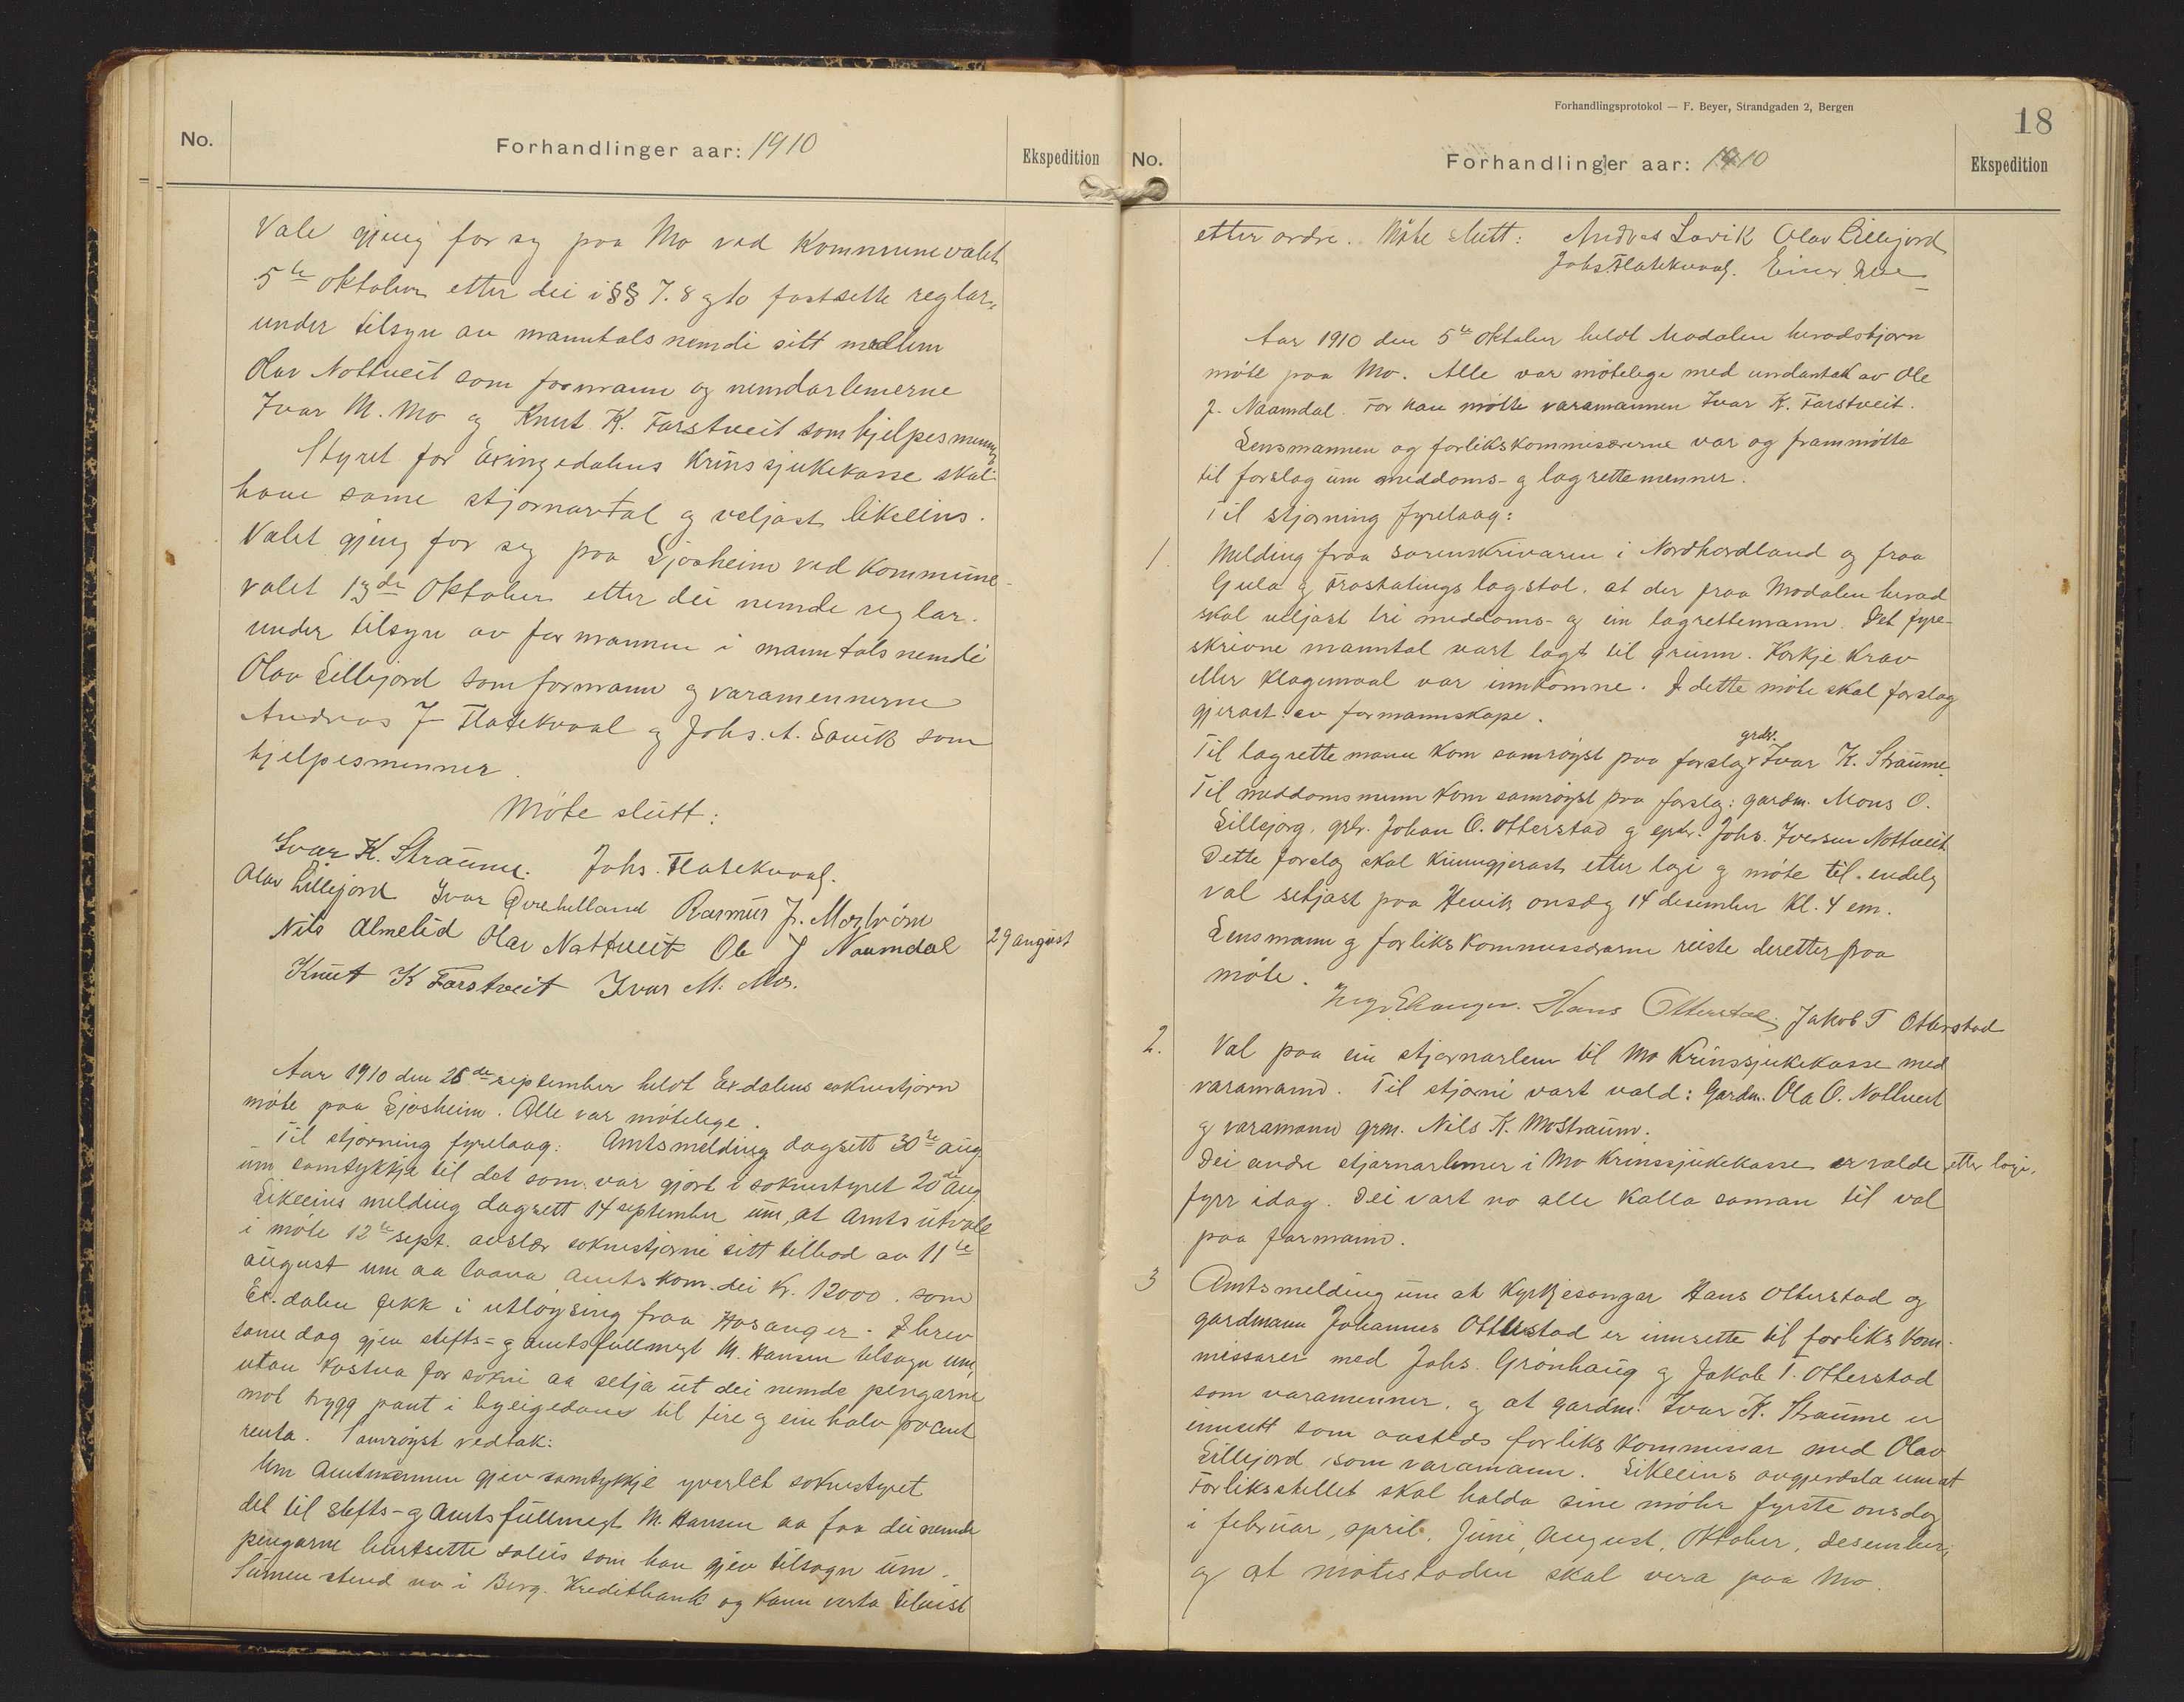 No.
Forhandlinger aar: 1910
Ekspedition
Vale gjeng for seg paa Mo ved Kommunevalet
5te oktober etter dei i §§ 7. 8 og 10 fastsette reglar
under tilsyn av manntalsnemdi sitt medlem
Olav Nottveit som formann og nemdarlemerne
Ivar M. Mo og Knut K. Farstveit som hjelpesmenner
Styret for Exingedalens Krinssjukekasse skal
have same stjornartal og veljast likeeins.
Valet gjeng for seg paa Sjoheim ved Kommune-
valet 13de Oktober etter dei nemde reglar.
under tilsyn av formannen i manntalsnemdi
Olav Lillejord som formann og varamennerne
Andreas J Flatekvaal og Johs. A. Lavik som
hjelpesmenner.
Möte slutt:
Ivar K. Straume. Johs. Flatekvaal.
Olav Lillejord Ivar Øvrehelland Rasmus J. Mostrøm
Nils Almelid Olav Nottveit Ole J Naamdal
29 august
Knut K Farstveit Ivar M. Mo.
Aar 1910 den 26de september heldt Exdalens soknestjorn
möte paa Sjosheim. Alle var mötelege.
Til stjorning fyrelaag: Amtsmelding dagsett 30te aug
um samtykkje til det som var gjort i soknestyret 20de aug
Likeeins melding dagsett 14 september um, at Amtsutvale
i möte 12te sept. avslær soknestjorni sitt tilbod av 11te
august um aa laana Amtskom. dei Kr. 12000. som
Ex.dalen fekk i utlöysing fraa Hosanger. I brev
same dag gjev stefts- og amtsfullmegt M. Hansen tilsagn um,
utan kostna for sokni aa setja ut dei nemde pengarne
mot trygg pant i byeigedom til fire og ein halv procent
renta. Samröyst vedtak:
Um Amtmannen gjev samtykkje yverlet soknestyret
det til stefts- og Amtsfullmegt M. Hansen aa faa dei nemde
pengarne burtsette soleis som han gjev tilsagn um.
Sumen stend no i Berg. Kreditbank og kann verta tilvist
Forhandlingsprotokol — F. Beyer, Strandgaden 2, Bergen
18
No.
Forhandlinger aar: 1910
Ekspedition
etter ordre. Möte slutt: Andreas Lavik Olav Lillejord
Johs Flatekvaal. Einar
Aar 1910 den 5te oktober heldt Modalen heradstjorn
möte paa Mo. Alle var mötelege med undantak av Ole
J. Naamdal. For han mötte varamannen Ivar K. Farstveit.
Lensmannen og forlikskommisærerne var og frammötte
til forslag um meddoms- og lagrettemenner.
Til stjorning fyrelaag:
1. Melding fraa sorenskrivaren i Nordhordland og fraa
Gula og Frostatings lagstol, at der fraa Modalen herad
skal veljast tri meddoms- og ein lagrettemann. Det fyre-
skrivne manntal vart lagt til grunn. Korkje krav
eller klagemaal var innkomne. I dette möte skal forslag
gjerast av formannskape.
Til lagrettemann kom samröyst paa forslag grdbr. Ivar K. Straume.
Til meddomsmenn kom samröyst paa forslag: gardm. Mons O.
Lillejorg, gbr. Johan O. Otterstad og gbr. Johs. Iversen Nottveit
Dette forslag skal kunngjerast etter logi og möte til endeleg
val setjast paa Henrik onsdag 14 desember Kl. 4 em.
Lensmann og forlikskommissærarne reiste deretter fraa
möte.
Hans Otterstad, Jakob T Otterstad
2. Val paa ein stjornarlem til Mo Krinssjukekasse med
varamann. Til stjorni vart vald: Gardm. Ola O. Nottveit
og varamann grm. Nils K. Mostraum.
Dei andre stjornarlemer i Mo Krinssjukekasse er valde etter logi,
fyrr idag. Dei vart no alle kalla saman til val
paa formann.
3 Amtsmelding um at Kyrkjesongar Hans Otterstad og
gardmann Johannes Otterstad er innsette til forlikskom-
missærer med Johs. Grönhaug og Jakob T. Otterstad
som varamenner, og at gardm. Ivar K. Straume er
innsett som aasteds forlikskommissær med Olav
Lillejord som varamann. Likeeins avgjerdsla um at
Forliksstellet skal halda sine möter fyrste onsdag
i februar, april, Juni, August, Oktober, desember,
og at mötestaden skal vera paa Mo.